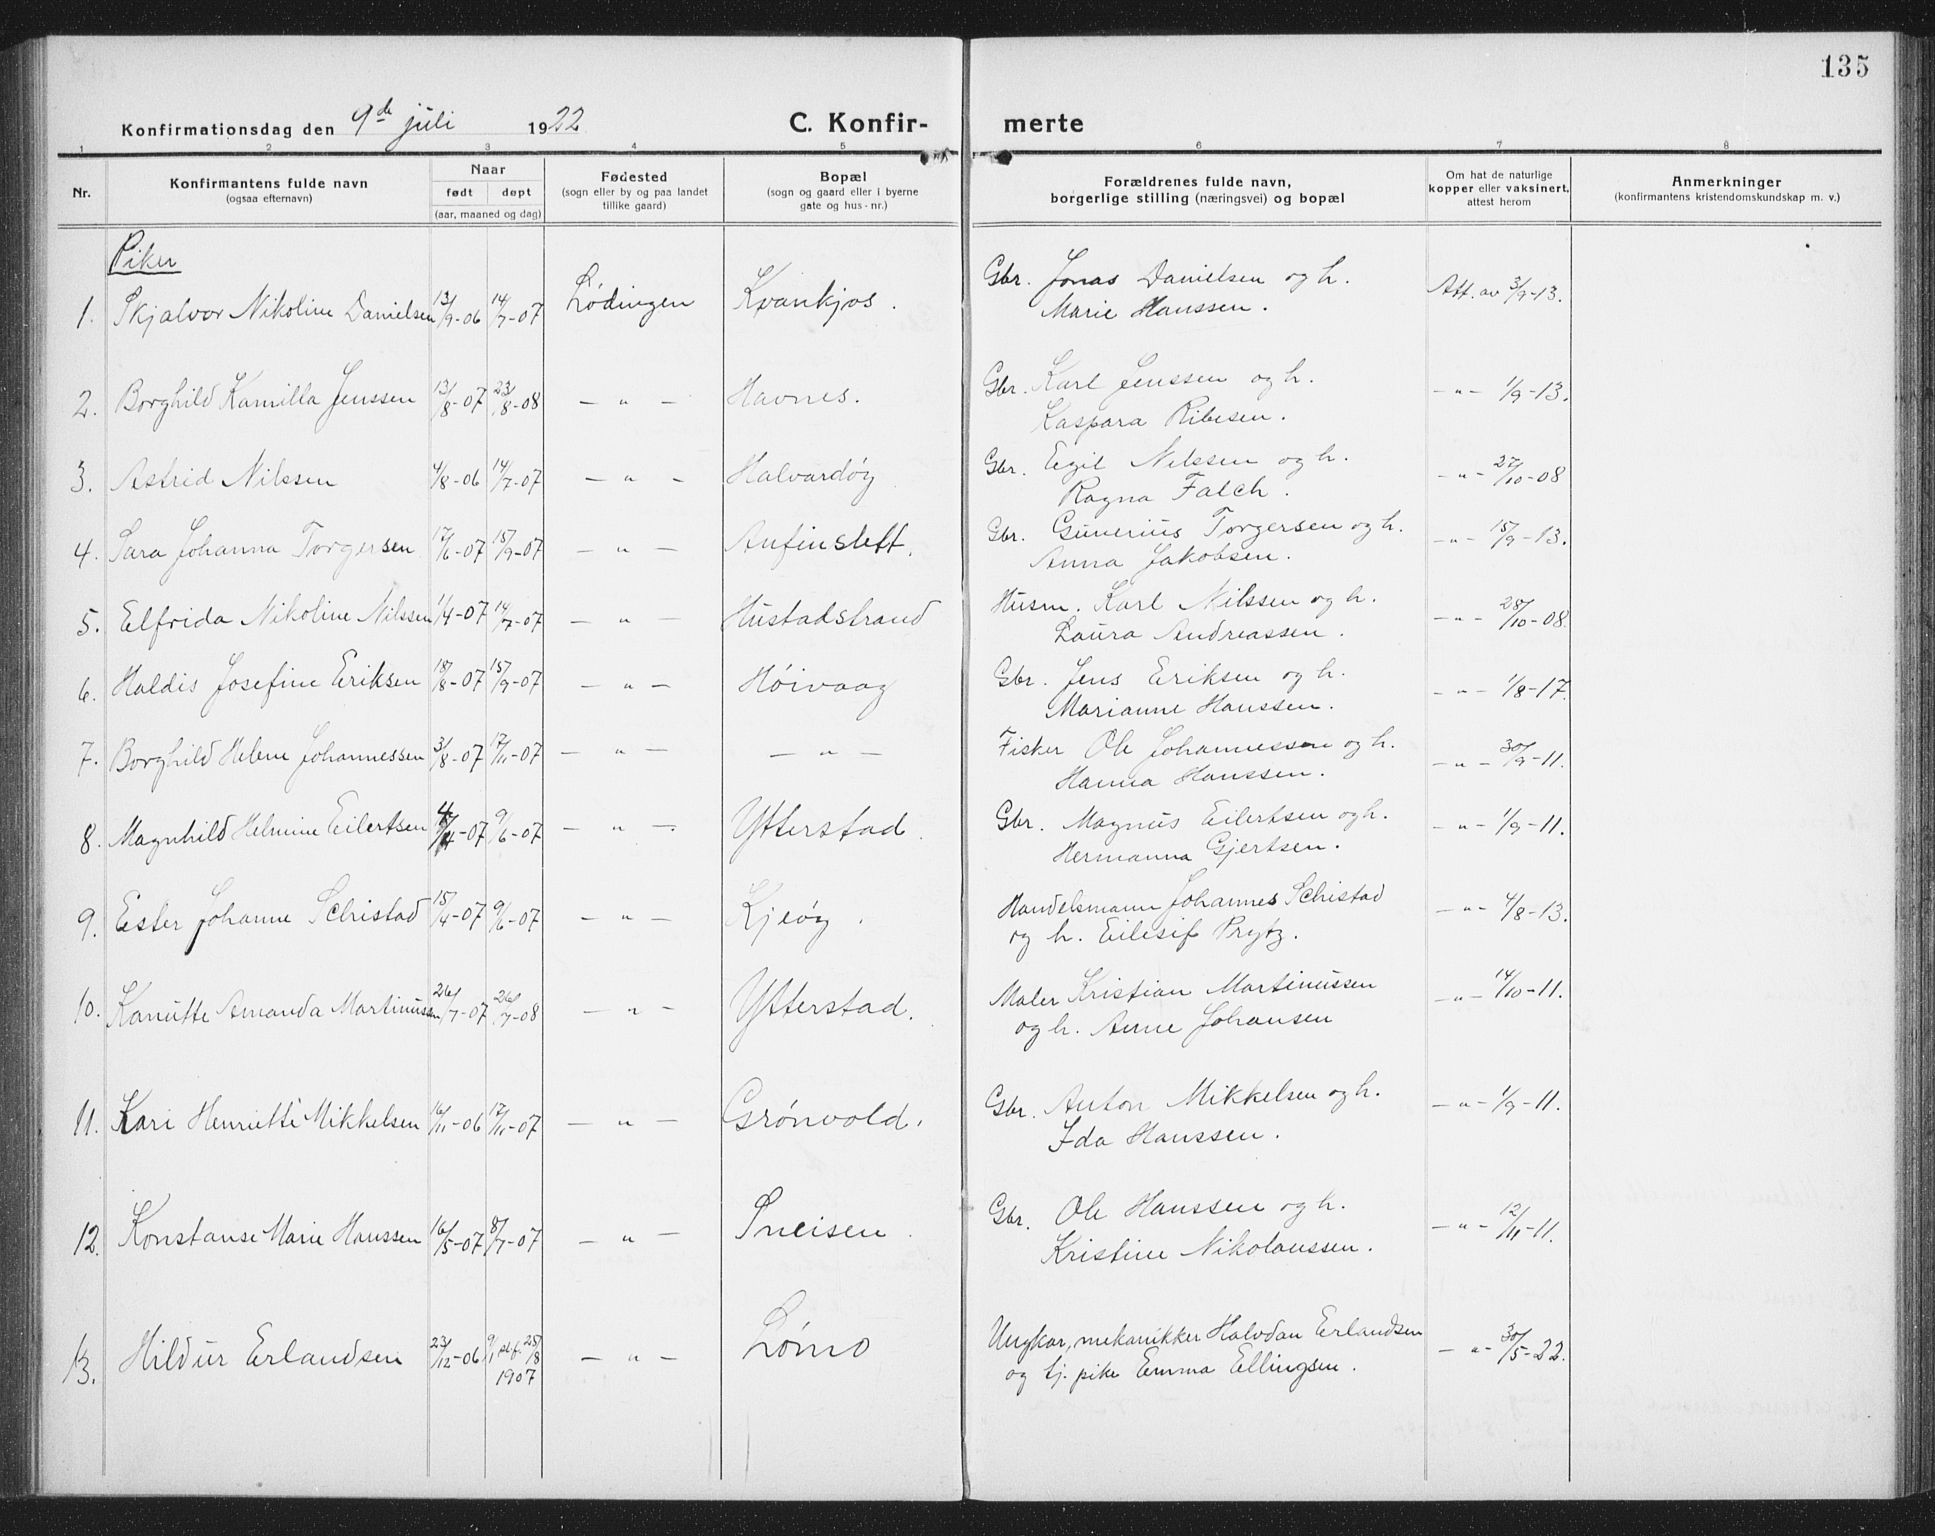 135
Konfirmationsdag den 9de juli 1922 C. Konfir- merte
1 2 3 4 5 6 7 8
Nr. Konfirmantens fulde navn (ogsaa efternavn) Naar født døpt (aar, maaned og dag) Fødested (sogn eller by og paa landet tillike gaard) Bopæl (sogn og gaard eller i byerne gate og hus-nr.) Forældrenes fulde navn, borgerlige stilling (næringsvei) og bopæl Om hat de naturlige kopper eller vaksinert, attest herom Anmerkninger (konfirmantens kristendomskundskap m. v.)
Piker
1. Skjalvor Nikoline Danielsen 13/9-06 14/7-07 Lødingen Kvankjos. Gbr. Jonas Danielsen og h. Att. av 3/9-13.
Marie Hanssen.
2. Borghild Kamilla Jenssen 13/8-07 23/8-08 — „ — Havnes. Gbr. Karl Jenssen og h. — „ — 1/9-13.
Kaspara Ribesen.
3. Astrid Nilssen 4/8-06 14/7-07 — „ — Halvardøy Gbr. Egil Nilssen og h. — „ — 27/10-08
Ragna Falch.
4. Sara Johanna Torgersen 17/6-07 15/9-07 — „ — Anfinslett. Gbr. Gunerius Torgersen og h. — „ — 15/9-13.
Anna Jakobsen.
5. Elfrida Nikoline Nilssen 1/4-07 14/7-07 — „ — Hustadstrand Husm. Karl Nilssen og h. — „ — 28/10-08.
Laura Andreassen.
6. Haldis Josefine Eriksen 18/8-07 15/9-07 — „ — Høivaag Gbr. Jens Eriksen og h. — „ — 1/8-17.
Marianne Hanssen.
7. Borghild Helene Johannessen 3/8-07 17/11-07 — „ — — „ — Fisker Ole Johannessen og h. — „ — 30/9-11.
Hanna Hanssen.
8. Magnhild Helmine Eilertsen 4/4-07 9/6-07 — „ — Ytterstad. Gbr. Magnus Eilertsen og h. — „ — 1/9-11.
Hermanna Gjertsen.
9. Ester Johanne Schistad 15/4-07 9/6-07 — „ — Kjeøy. Handelsmann Johannes Schistad — „ — 4/8-13.
og h. Eilisif Prytz.
10. Kanutte Amanda Martinussen 26/7-07 26/7-08 — „ — Ytterstad. Maler Kristian Martinussen — „ — 14/10-11.
og h. Anne Johansen
11. Kari Henriette Mikkelsen 16/11-06 17/11-07 — „ — Grønvold. Gbr. Anton Mikkelsen og h. — „ — 1/9-11.
Ida Hanssen.
12. Konstanse Marie Hanssen 16/5-07 8/7-07 — „ — Sneisen. Gbr. Ole Hanssen og h. — „ — 12/11-11.
Kristine Nikolaussen.
13. Hildur Erlandsen 23/12-06 9/1 st.f. 25/8 1907 — „ — Lømo Ungkar, mekanikker Halvdan Erlandsen — „ — 30/5-22.
og tj. pike Emma Ellingsen.